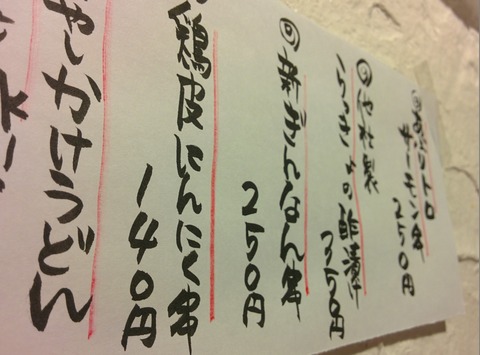 あぶりトロ
サーモン串
250円
◎自社製
らっきょの酢漬
350円
◎新ぎんなん串
250円
鶏皮にんにく串
140円
やしかけうどん